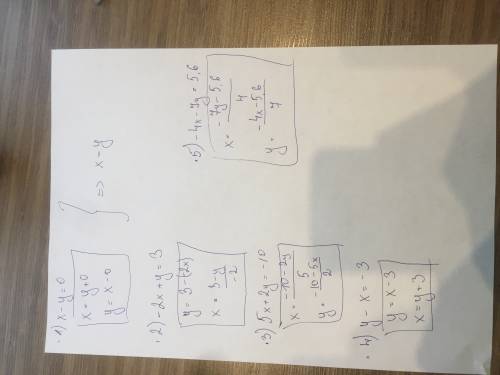 1) x-y=0
x = y+0
y = x-0
} => x-y
2) -2x+y=3
y = 3-(2x)
x = 3-y / -2
3) 5x+2y=-10
x = -10-2y / 5
y = -10-5x / 2
4) y-x=-3
y = x-3
x = y+3
5) -4x-7y=5,6
x = -7y-5,6 / 4
y = -4x-5,6 / 7